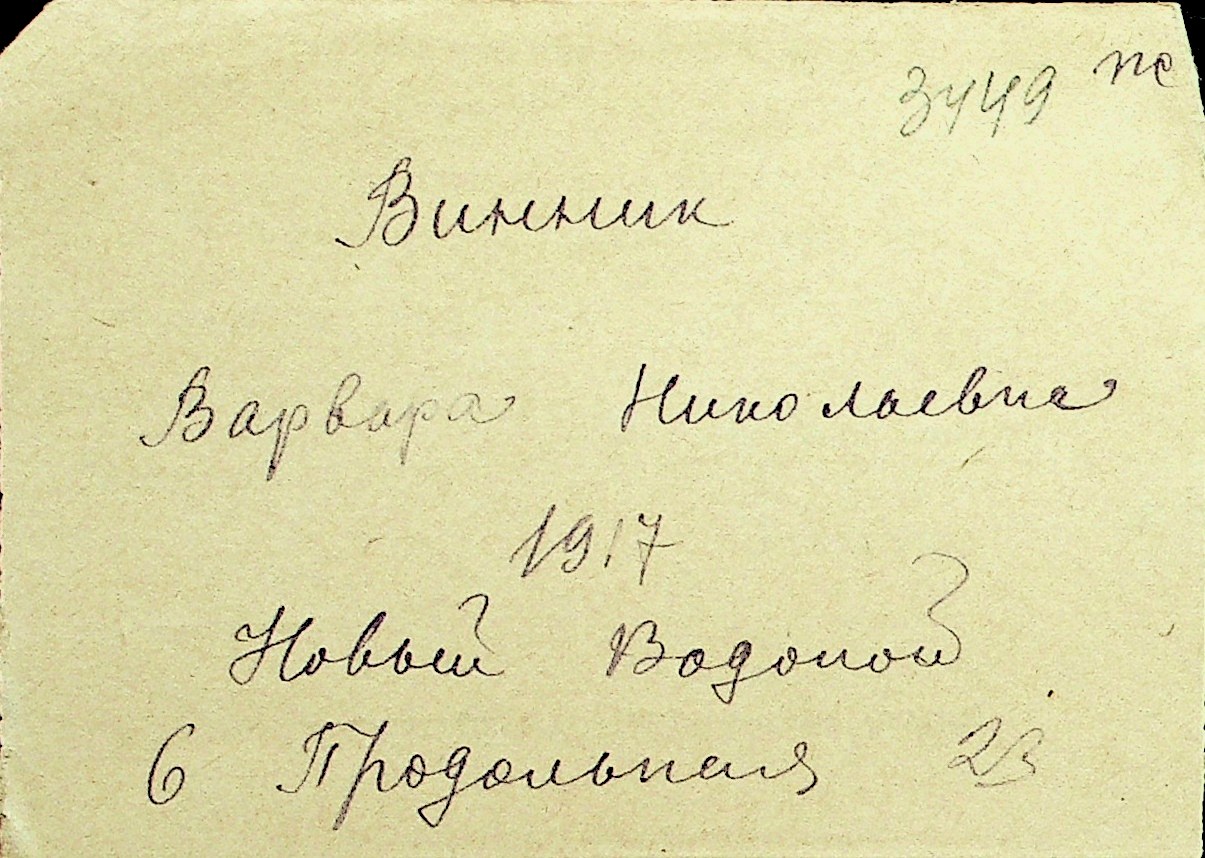 3449 пс
Винник
Варвара Николаевна
1917
Новый Водопой
6 Продольная 23